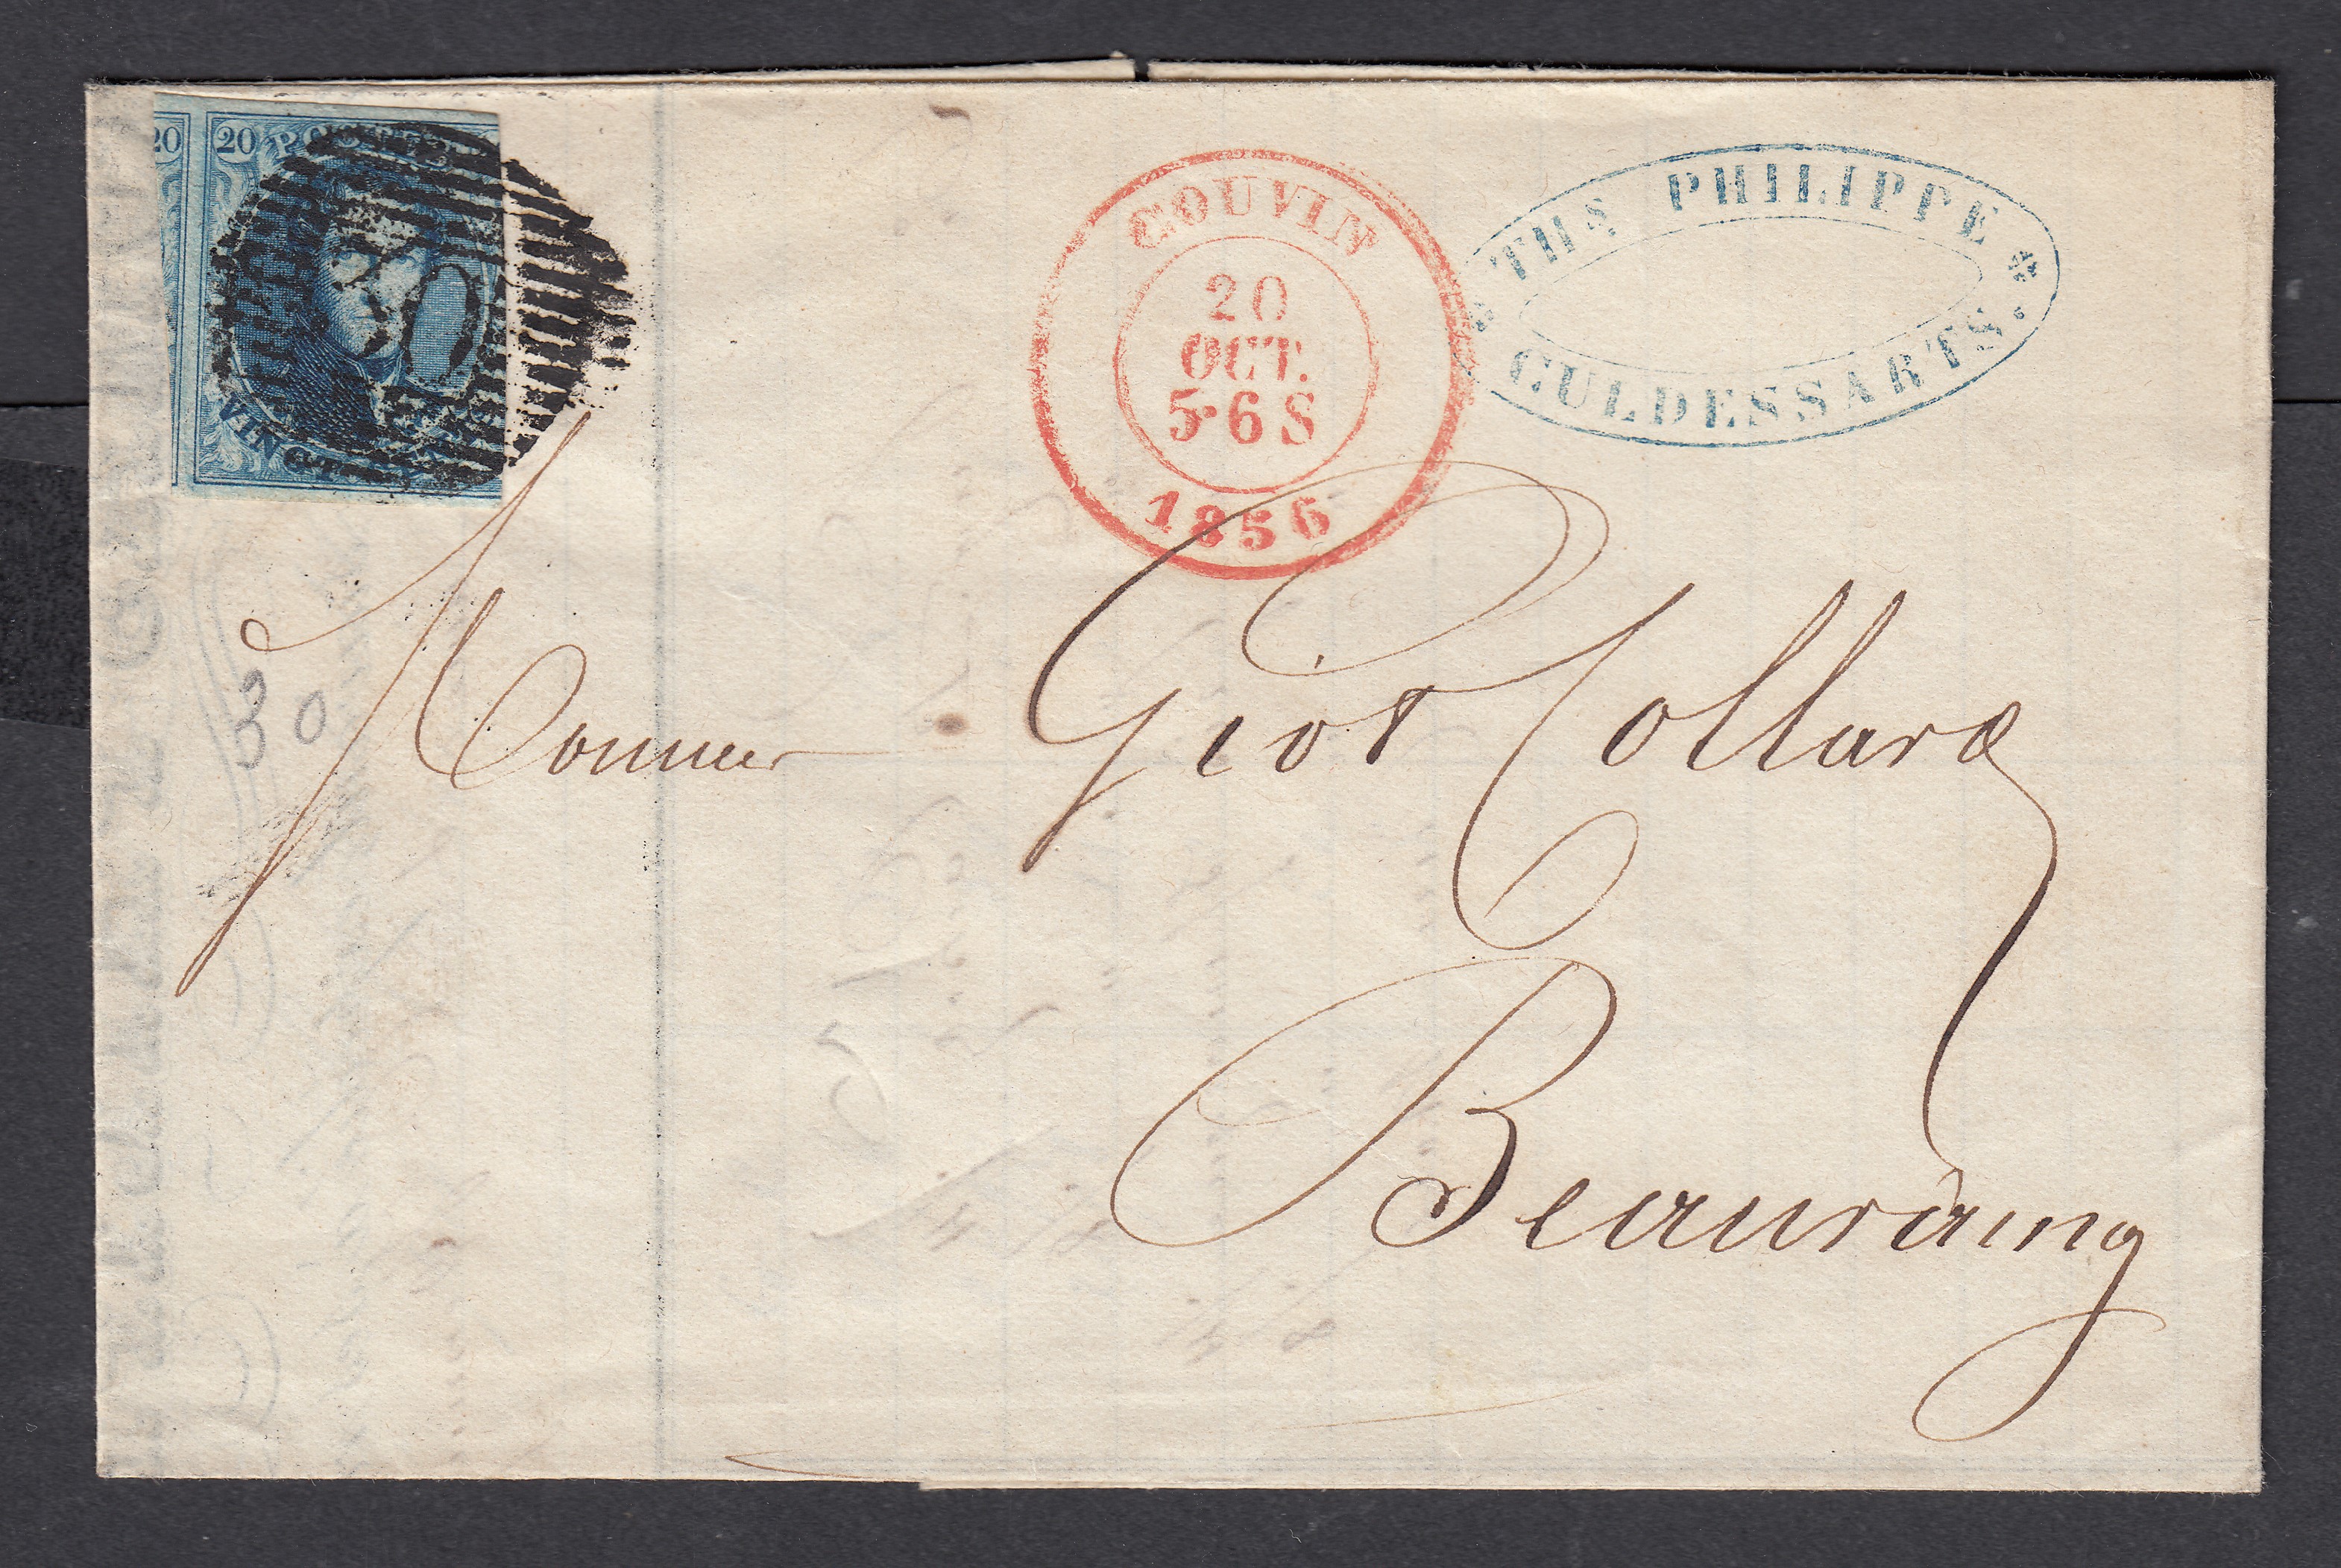 20 20 POSTES
30
VINGT CENTIMES
COUVIN
20
OCT.
5·6 S
1856
THS PHILIPPE
CULDESSARTS.
30
Monsieur Giot Collard
Beauraing